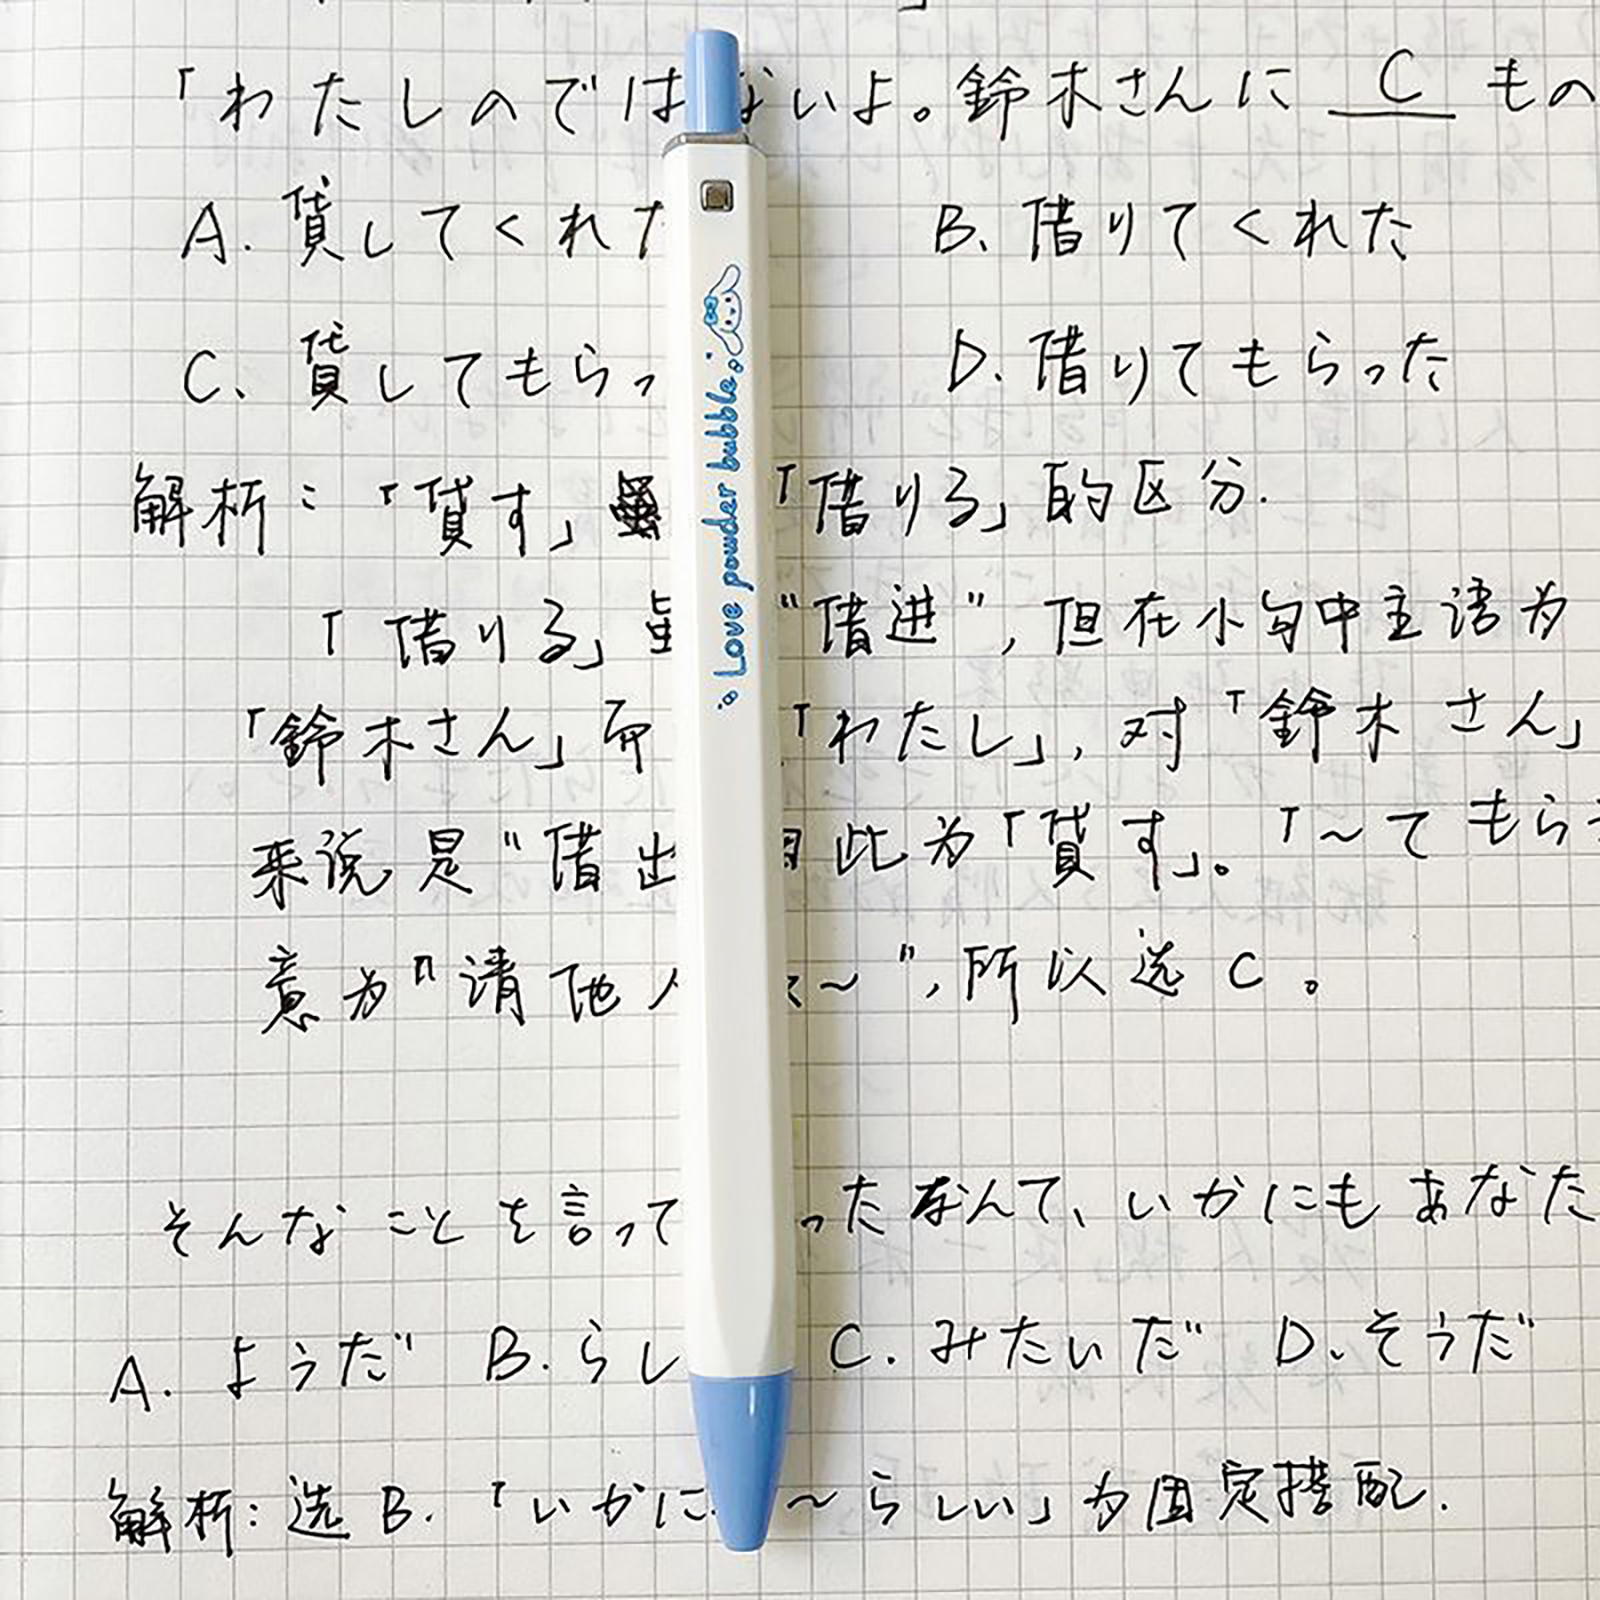 「わたしのでは ないよ。鈴木さんに C もの
A. 貸してくれた B. 借りてくれた
C. 貸してもらっ D. 借りてもらった
解析:「貸す」 「借りる」的区分.
「借りる」虽 “借进”, 但在小句中主语为
「鈴木さん」而 「わたし」, 对「鈴木さん」
来说是“借出 因此为「貸す」。「~てもらう
意为“请他人 ~”, 所以选 C。
そんなことを言って ったなんて、いかにもあなた
A. ようだ B. らし C. みたいだ D. そうだ
解析: 选 B. 「いかに ~らしい」为固定搭配.
Love powder bubble